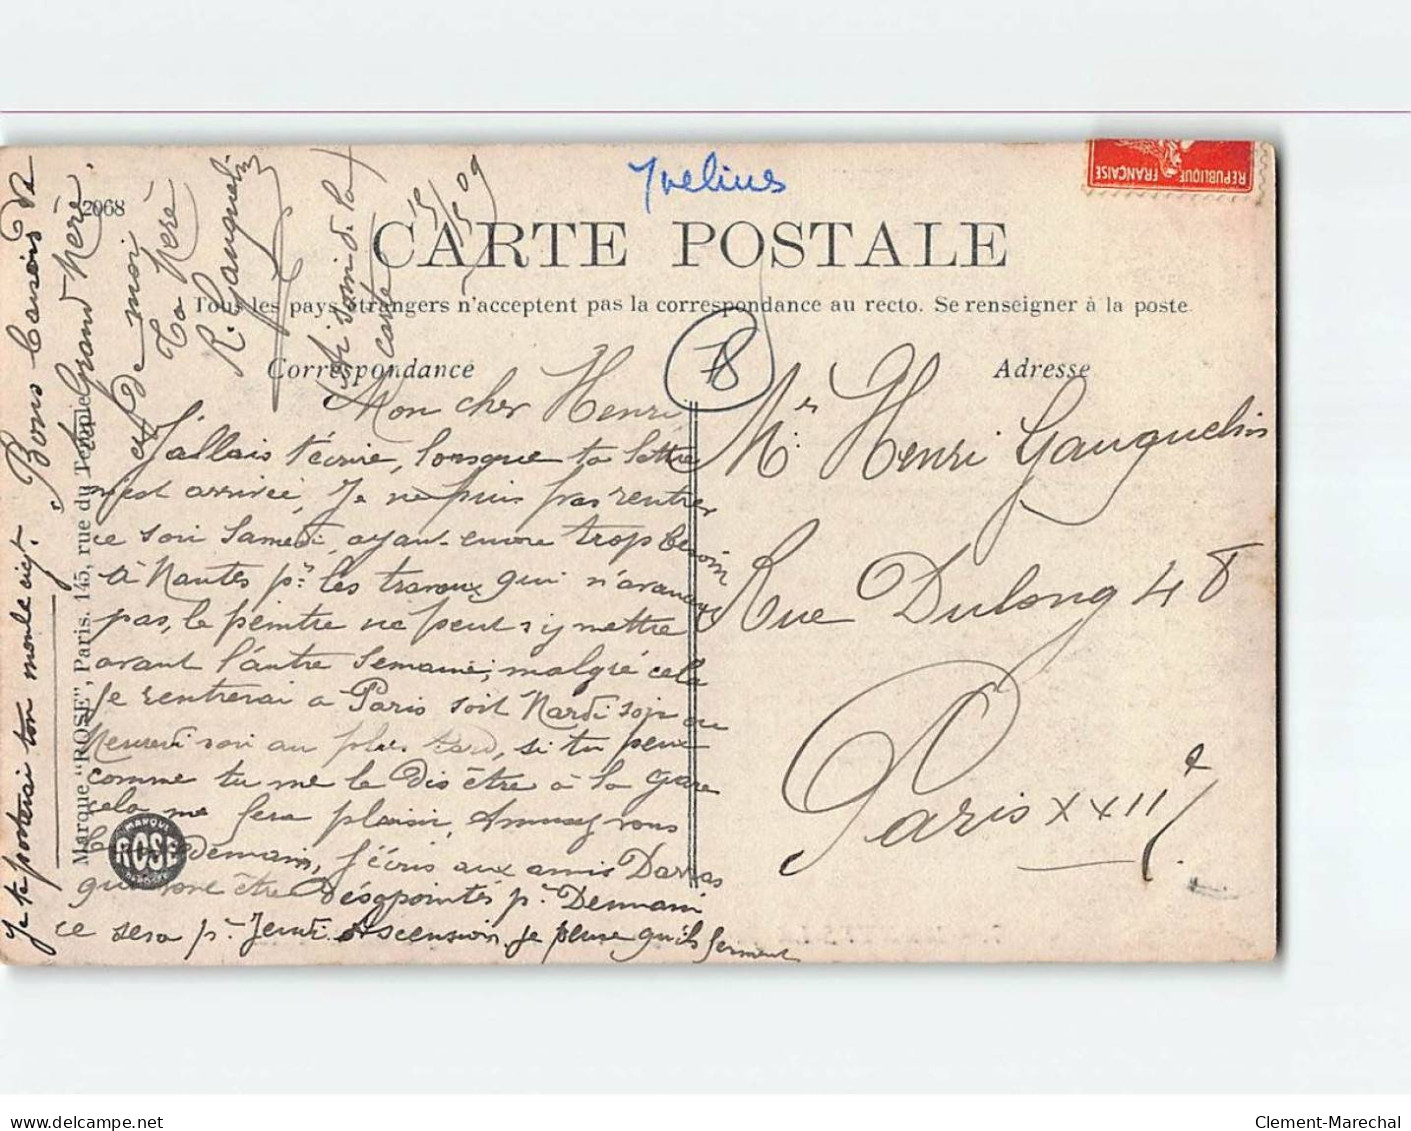 Yvelines
REPUBLIQUE FRANÇAISE
2068
CARTE POSTALE
Tous les pays étrangers n'acceptent pas la correspondance au recto. Se renseigner à la poste
Correspondance
Adresse
78
Mon cher Henri
J'allais t'écrire, lorsque ta lettre
m'est arrivée, Je ne puis pas rentrer
ce soir Samedi, ayant encore trop besoin
à Nantes pr les travaux qui n'avancent
pas, le peintre ne peut s'y mettre
avant l'autre Semaine; malgré cela
je rentrerai a Paris soit Mardi soir ou
Mercredi soir au plus tard, si tu peux
comme tu me le dis être à la gare
cela me fera plaisir, Amusez vous
Demain, J'écris aux amis Darras
qui vont être désapointés pr Demain
ce sera pr Jeudi Ascension, je pense qu'ils
Mr Henri Gauguelin
Rue Dulong 48
Paris XXII
Je te porterai ton
Bons baisers de
Grand Mère
et de moi
Ta Mère
R. Gauguelin
soin de la
carte
15/5/09
Marque "ROSE", Paris. 145, rue du Temple
MARQUE
ROSE
DÉPOSÉE
Clement-Marechal
delcampe.net